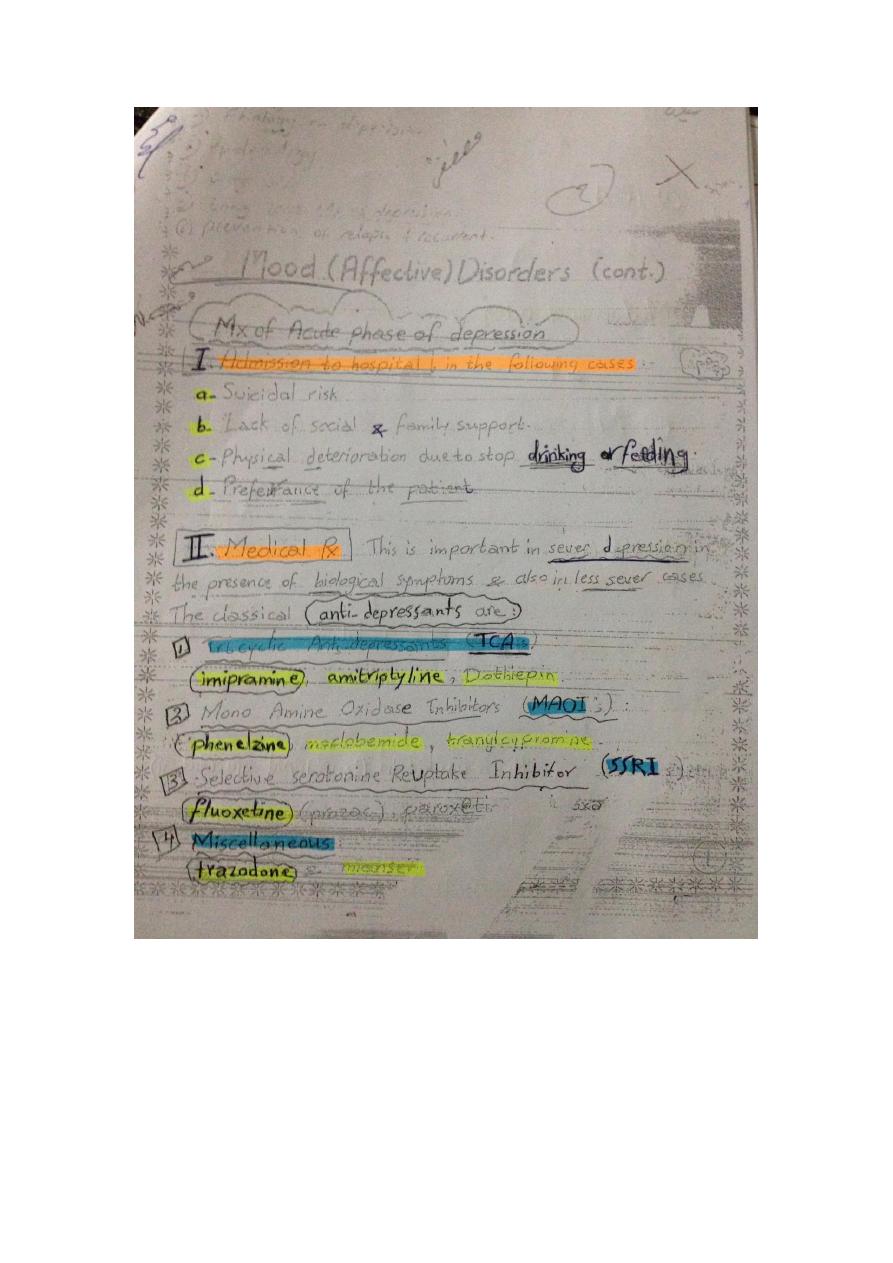 epidemiology
of depression
⑥ prevention of relapse & recurrent.
Mood (Affective) Disorders (cont.)
Mx of Acute phase of depression
I. Admission to hospital in the following cases:
a- Suicidal risk
b- Lack of social & family support.
c- Physical deterioration due to stop drinking or feeding.
d- Preferance of the patient
II. Medical Rx This is important in sever depression in
the presence of biological symptoms & also in less sever cases
The classical anti-depressants are:
1 Tricyclic Anti depressants (TCA s)
imipramine, amitriptyline, Dothiepin.
2 Mono Amine Oxidase Inhibitors (MAOI s) :
phenelzine, moclobemide, tranylcypromine.
3 Selective serotonine Reuptake Inhibitor (SSRI s)
fluoxetine (prozac),
4 Miscellaneous:
trazodone &